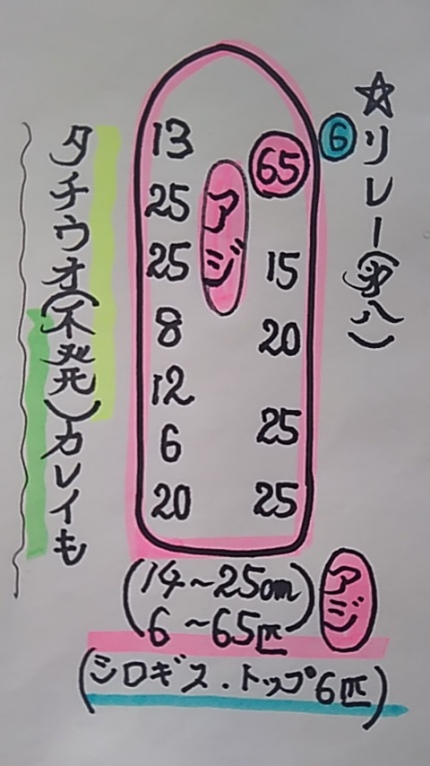 ☆リレー
6
65
15
20
25
25
アジ
13
25
25
8
12
6
20
タチウオ(不発)カレイも
(14~25cm
6~65匹)
アジ
(シロギス.トップ6匹)